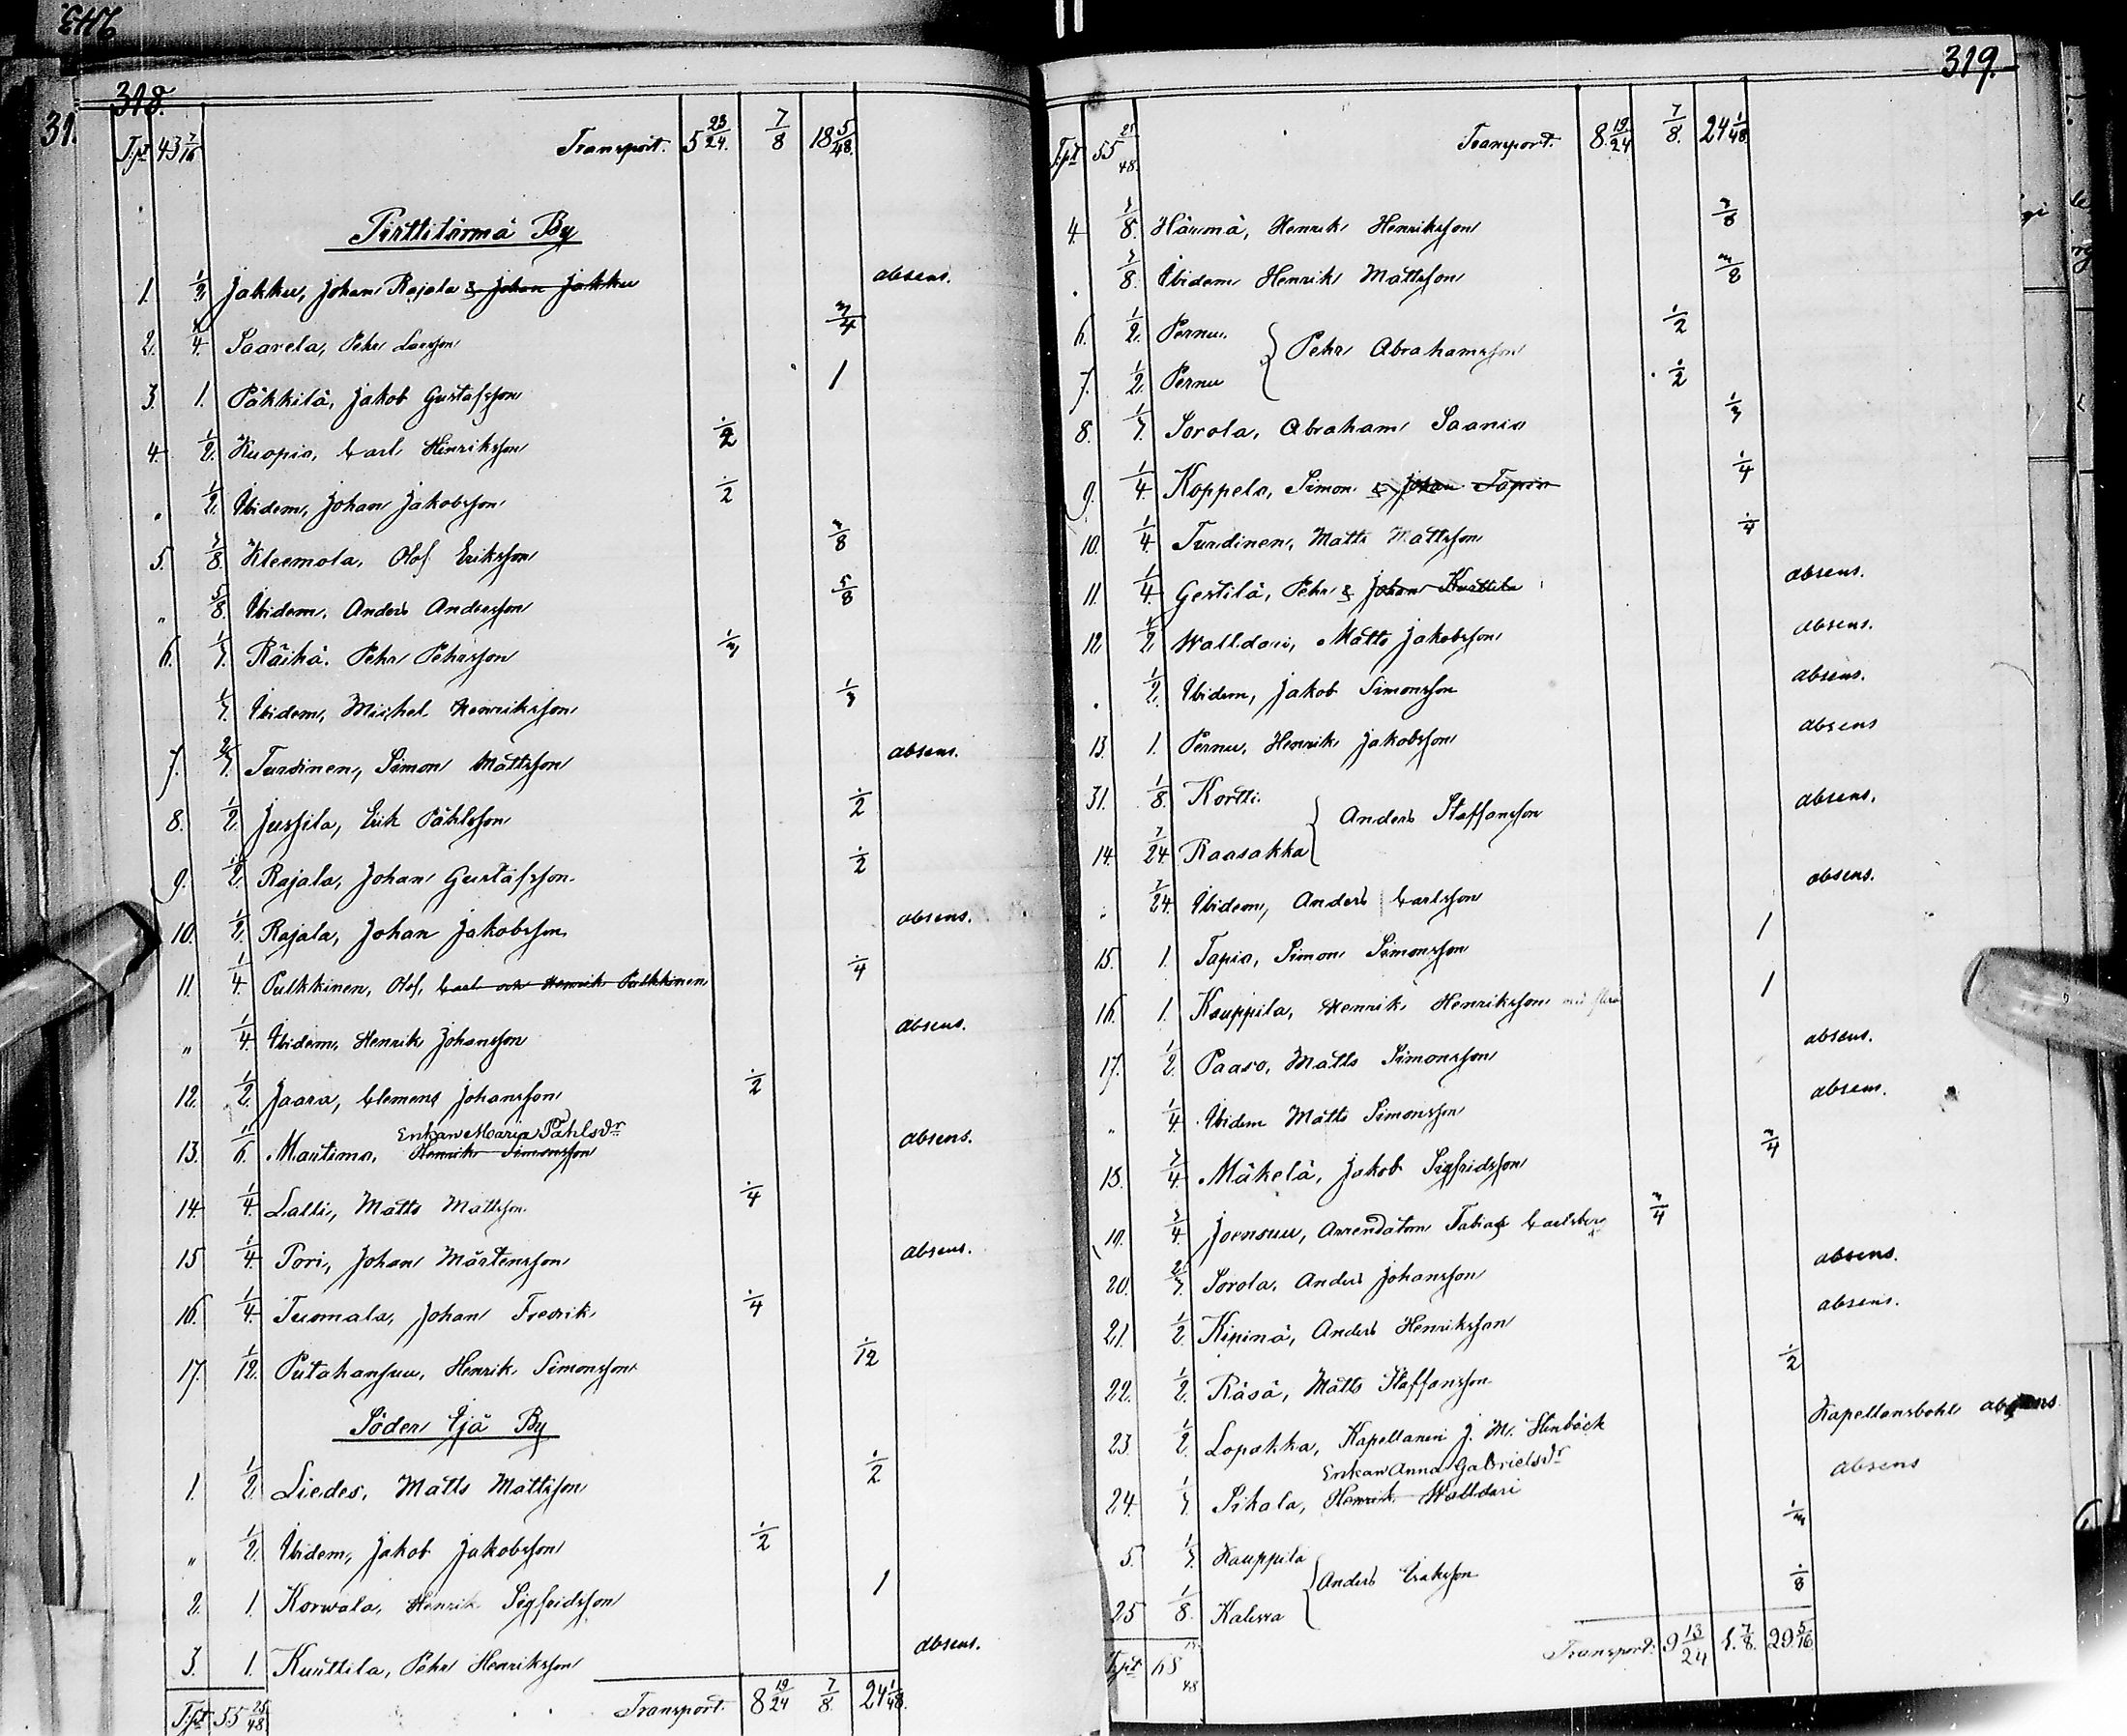 318.
31.
T:pt 43 7/16 Transport. 5 23/24. 7/8 18 5/48.
Pirttitörmä By
1. 1/3 Jakku, Johan Rajala & Johan Jakku absens.
2. 3/4. Saarela, Pehr Larsson 3/4
3. 1. Päkkilä, Jakob Gustafsson 1
4. 1/2. Kuopio, Carl Henriksson 1/2
" 1/2. Ibidem, Johan Jakobsson 1/2
5. 3/8. Kleemola, Olof Eriksson 3/8
" 5/8. Ibidem, Anders Andersson 5/8
6. 1/3. Räihä. Pehr Pehrsson 1/3
1/3. Ibidem, Michel Henriksson 1/3
7. 2/3. Turdinen, Simon Mattsson absens.
8. 1/2. Jussila, Erik Påhlsson 1/2
9. 1/2. Rajala, Johan Gustafsson. 1/2
10. 1/2. Rajala, Johan Jakobsson absens.
11. 1/4. Pulkkinen, Olof, Carl och Henrik Pulkkinen 1/4
" 1/4. Ibidem, Henrik Johansson absens.
12. 1/2. Jaara, Clemens Johansson 1/2
Enkan Maria Påhlsdr
13. /6. Martimo, Henrik Simonsson absens.
14. 1/4. Lalli, Matts Mattsson. 1/4
15 1/4. Pori, Johan Mårtensson absens.
16. 1/4. Tuomala, Johan Fredrik 1/4
17. 1/12. Putahansuu, Henrik Simonsson 1/12
Söder Ijå By
1. 1/2. Liedes, Matts Mattsson 1/2
" 1/2. Ibidem, Jakob Jakobsson 1/2
2. 1. Korwala, Henrik Sigfridsson 1
3. 1. Kurttila, Pehr Henriksson absens.
T:pt 55 25/48 Transport. 8 19/24 7/8. 24 1/48.
319.
T:pt 55 25/48. Transport. 8 19/24 7/8. 24 1/48.
4. 3/8. Härmä, Henrik Henriksson 3/8
" 3/8. Ibidem Henrik Mattsson 3/8
6. 1/2. Pernu. } Pehr Abrahamsson 1/2
7. 1/2. Pernu 1/2
8. 1/3. Sorola, Abraham Saanio 1/3
9. 1/4. Koppelo, Simon & Johan Tapio 1/4
10. 1/4. Turdinen, Matts Mattsson 1/4
11. 1/4. Gestilä, Pehr & Johan Kurttila absens.
12 1/2. Walldari, Matts Jakobsson absens.
" 1/2. Ibidem, Jakob Simonsson absens.
13. 1. Pernu, Henrik Jakobsson absens
31. 1/8. Kortti. } Anders Staffansson absens.
14. 7/24. Raasakka
" 7/24. Ibidem, Anders Carlsson absens.
15. 1. Tapio, Simon Simonsson 1
16. 1. Kauppila, Henrik Henriksson 1
17. 1/2. Paaso, Matts Simonsson absens.
" 1/4. Ibidem Matts Simonsson absens.
18. 3/4. Mäkelä, Jakob Sigfridsson 3/4
19. 3/4. Joensuu, Arrendatorn Tobias Carlsberg 3/4
20. 2/3. Sorola, Anders Johansson absens.
21. 1/2. Kipinä, Anders Henriksson absens.
22. 1/2. Räsä, Matts Staffansson 1/2
23. 1/2. Lopakka, Kapellanen J. M. Stenbäck Kapellansbohl absens
Enkan Anna Gabrielsdr
24. 1/3. Pikala, Henrik Walldari absens
5. 1/3. Kauppila } Anders Eriksson 1/3
25 1/8. Kaliwa 1/8
T:pt 68 /48 Transport: 9 13/24 1. 7/8. 29 5/16